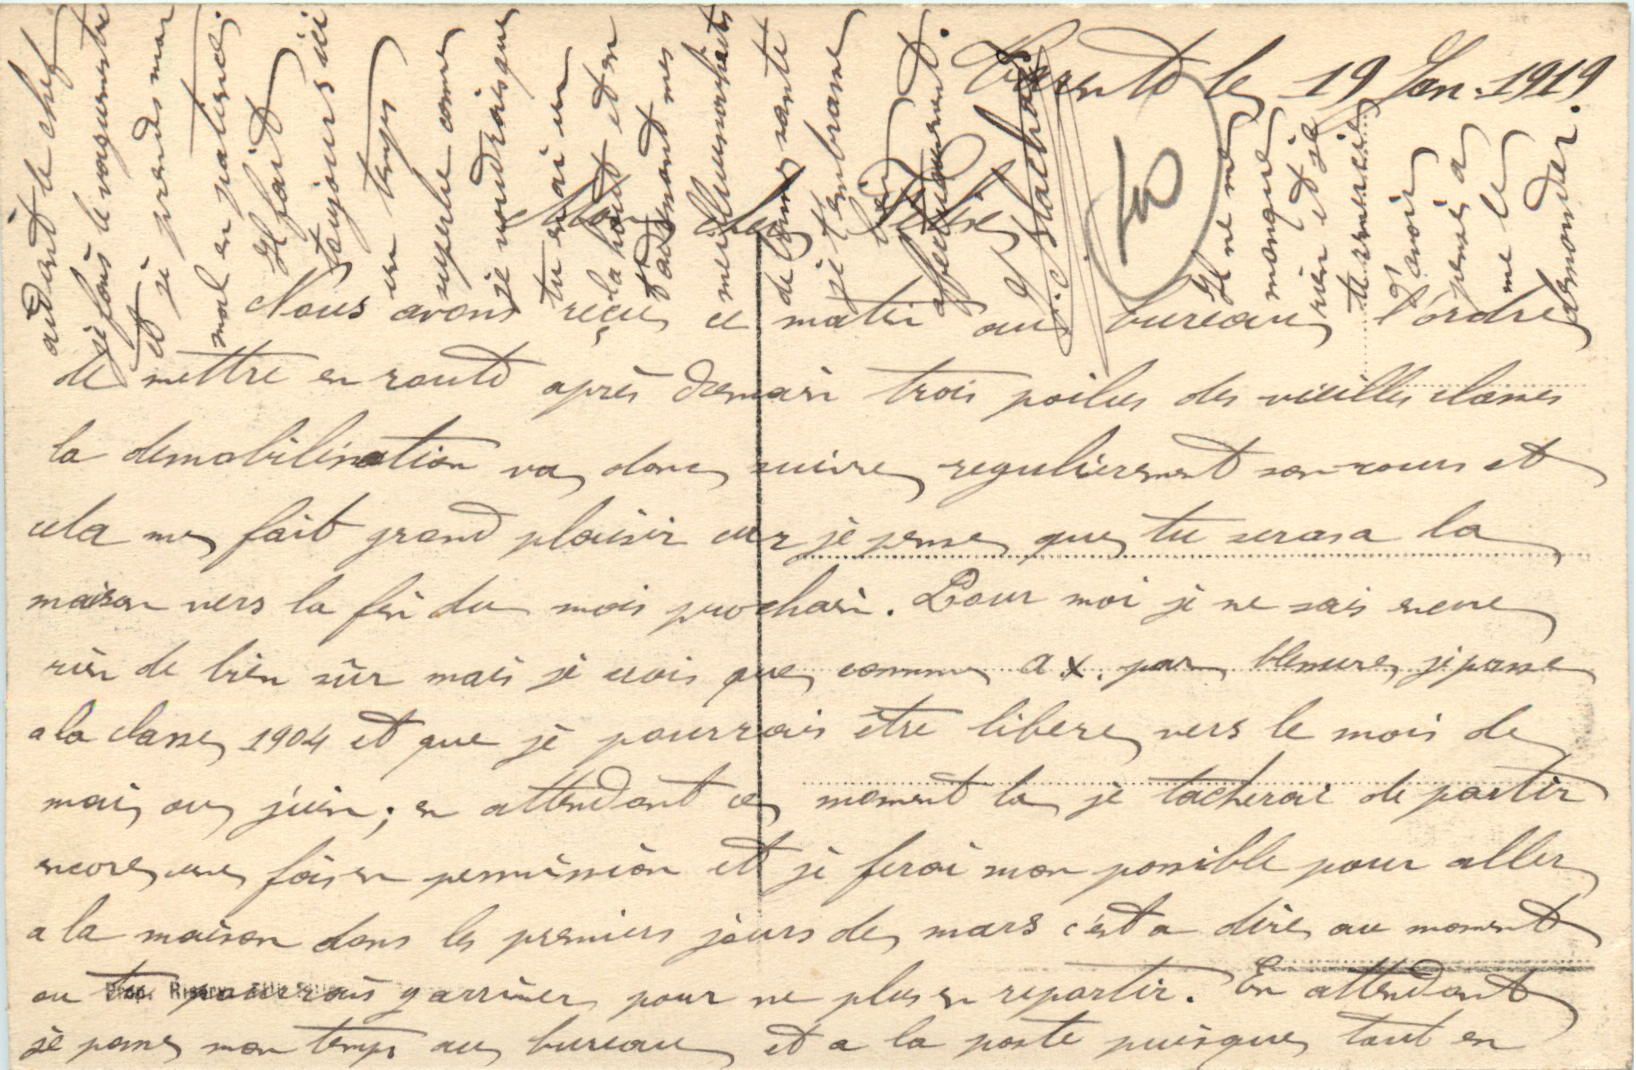 Tarente le 19 Jan. 1919
Mon cher
Nous avons reçu ce matin au bureau l'ordre
de mettre en route après demain trois poilus des vieilles classes
la demobilisation va donc suivre regulierement son cours et
cela me fait grand plaisir car je pense que tu seras a la
maison vers la fin du mois prochain. Pour moi je ne sais encore
rien de bien sûr mais je crois que comme a x. par blessure, je passe
a la classe 1904 et que je pourrais être libere vers le mois de
mai ou juin; en attendant ce moment la je tacherai de partir
encore une fois en permission et je ferai mon possible pour aller
a la maison dans les premiers jours de mars c'est a dire au moment
ou tu pourrais y arriver pour ne plus en repartir. En attendant
je passe mon temps au bureau et a la poste puisque tout en
aidant le chef
je fais le vaguemestre
et je prends mon
mal en patience.
Il fait
toujours ici
un temps
superbe comme
je voudrais que
tu en ai un
la haut et en
t'adressant mes
meilleurs souhaits
de bonne sante
je t'embrasse
bien
affectueusement.
Il ne me
manque
rien et je
te remercie
d'avoir
pensé a
me le
demander.